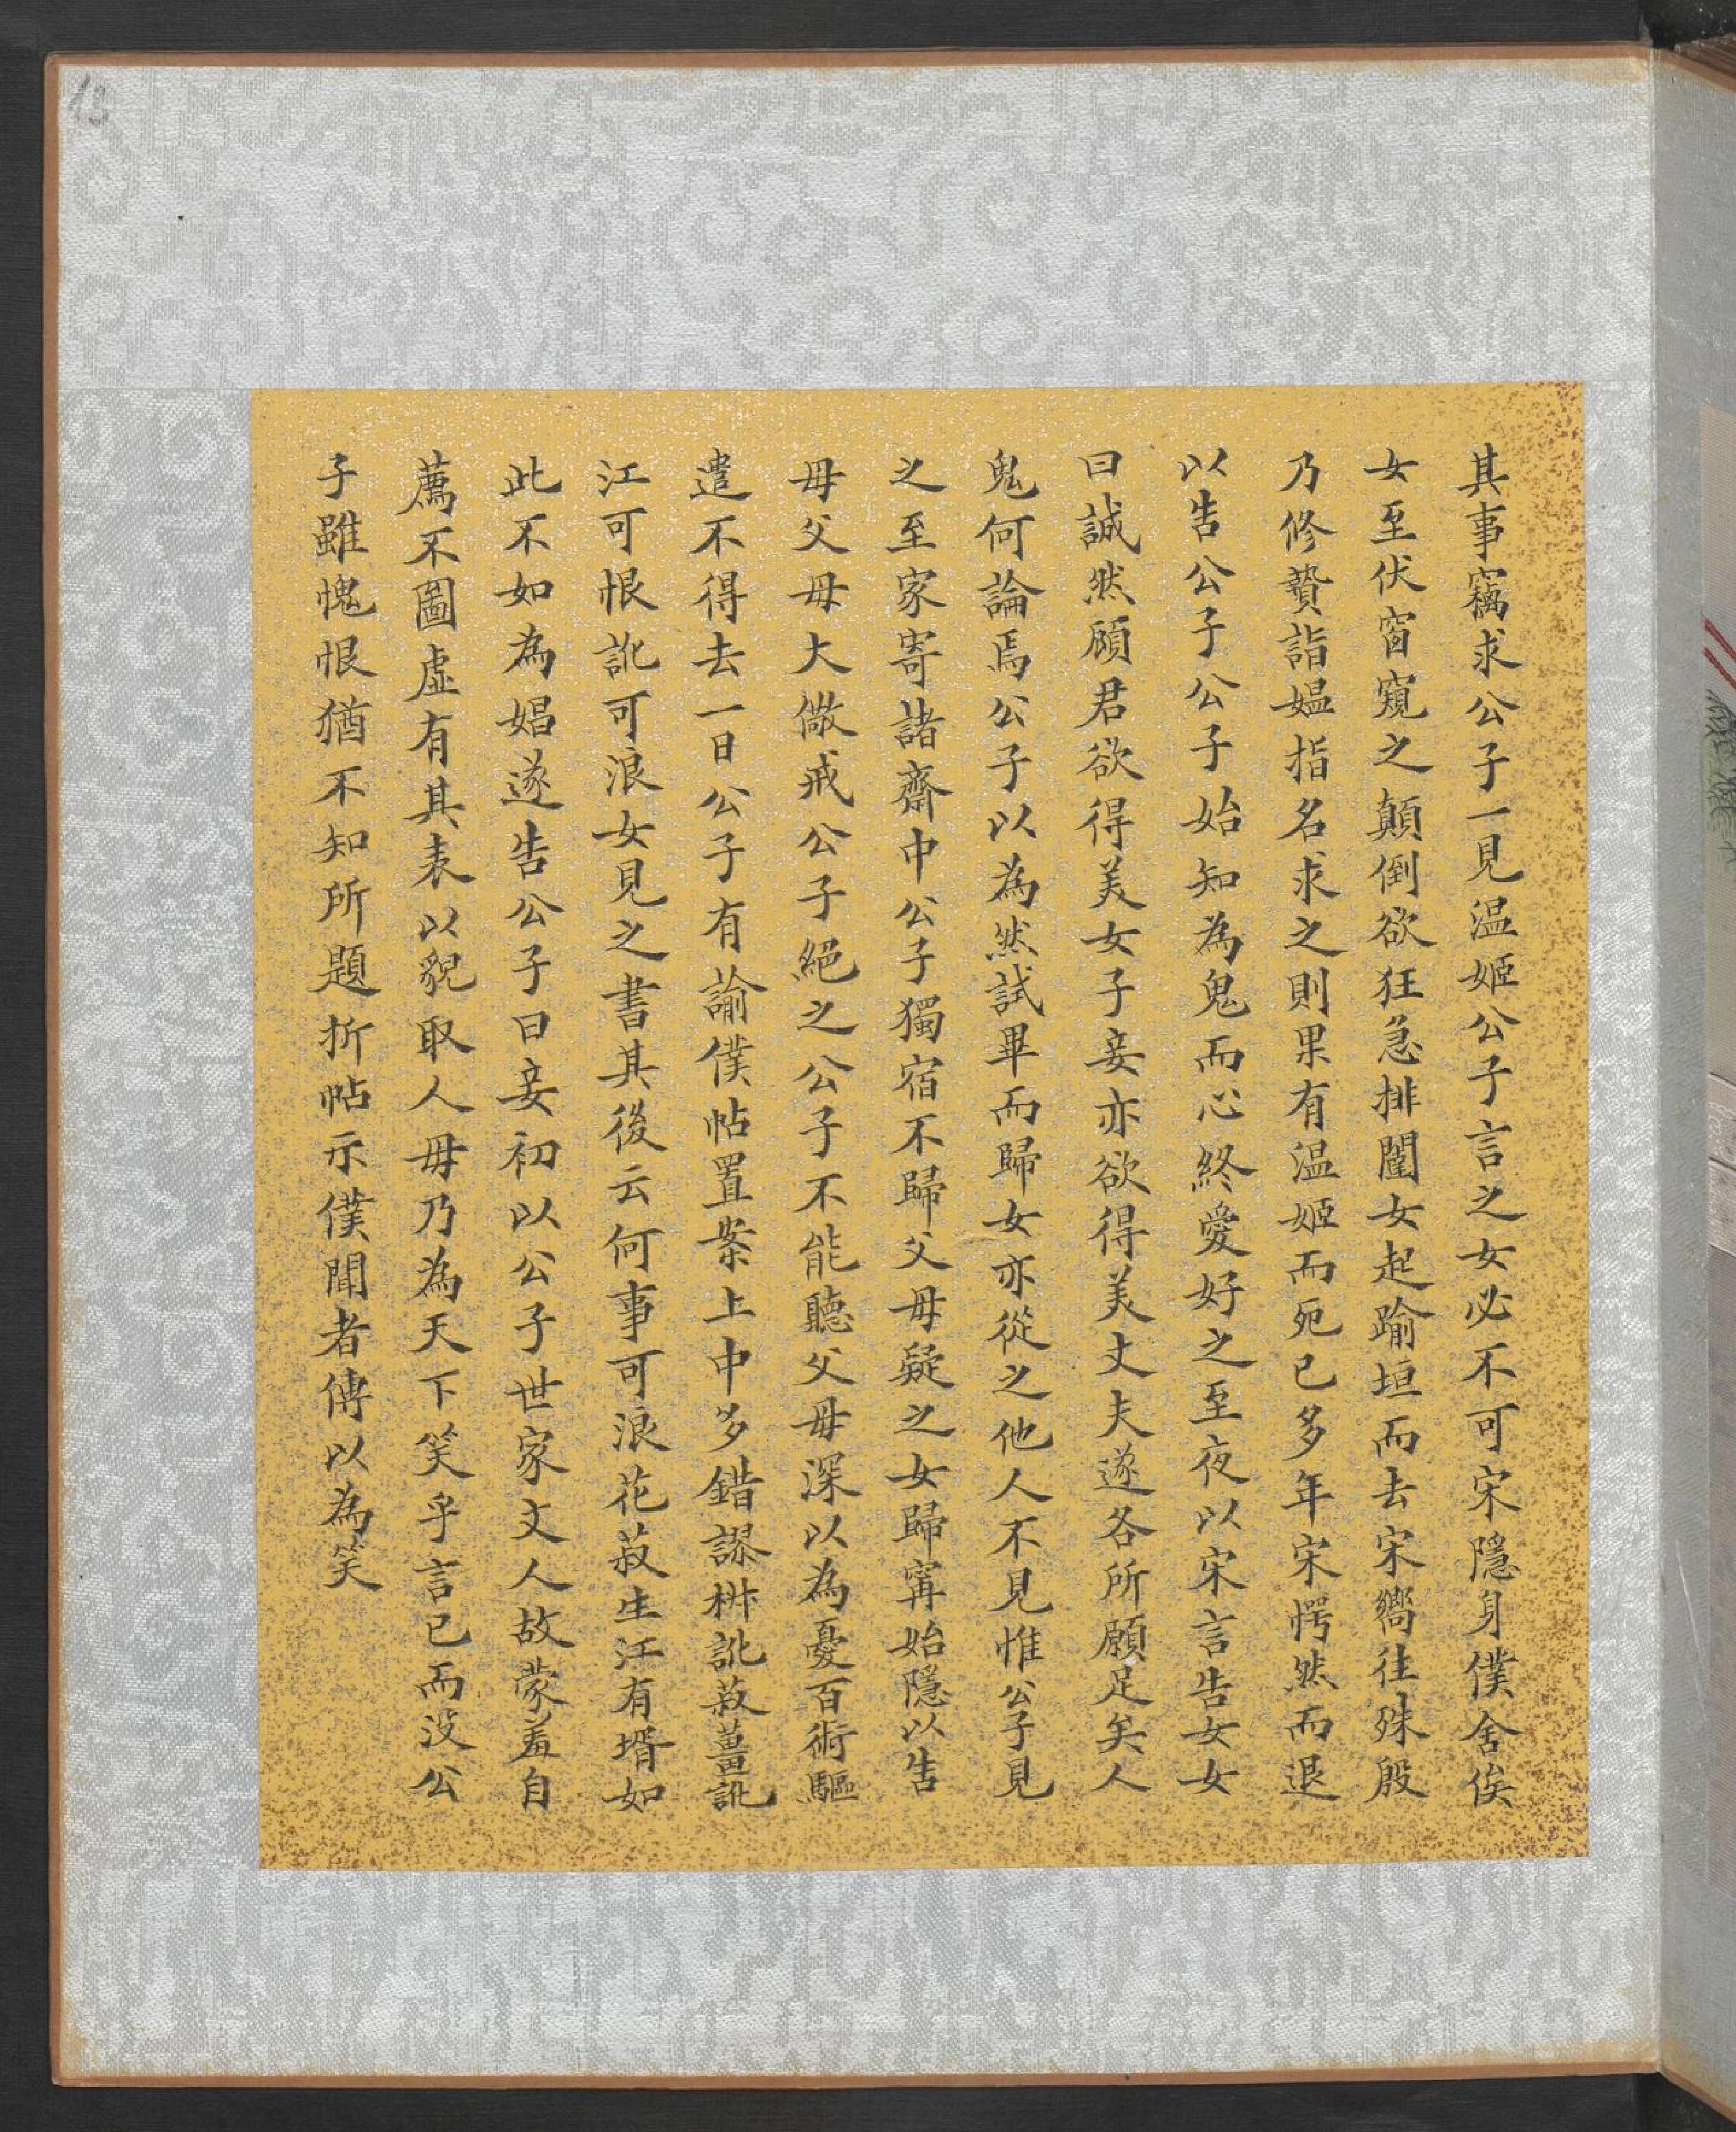 13
其事竊求公子一見温姬公子言之女必不可宋隱身僕舍俟
女至伏窗窺之顛倒欲狂急排闥女起踰垣而去宋嚮往殊殷
乃修贄詣媪指名求之則果有温姬而死已多年宋愕然而退
以告公子公子始知為鬼而心終愛好之至夜以宋言告女女
曰誠然顧君欲得美女子妾亦欲得美丈夫遂各所願足矣人
鬼何論焉公子以為然試畢而歸女亦從之他人不見惟公子見
之至家寄諸齋中公子獨宿不歸父母疑之女歸寧始隱以告
母父母大儆戒公子絕之公子不能聽父母深以為憂百術驅
遣不得去一日公子有諭僕帖置案上中多錯謬椒訛菽薑訛
江可恨訛可浪女見之書其後云何事可浪花菽生江有壻如
此不如為娼遂告公子曰妾初以公子世家文人故蒙羞自
薦不圖虛有其表以貌取人毋乃為天下笑乎言已而没公
子雖愧恨猶不知所題折帖示僕聞者傳以為笑